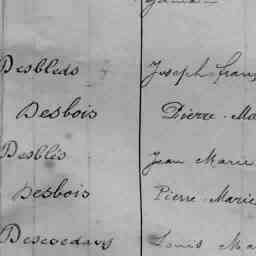 Desbleds Joseph fran
Desbois Pierre Ma
Desblés Jean Marie
Desbois Pierre Marie
Louis Ma